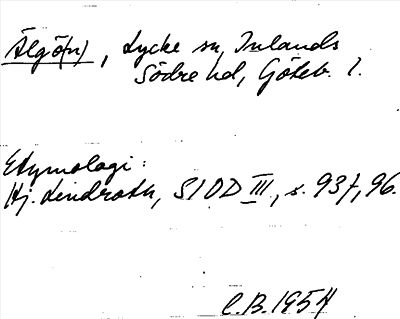 Älgö(n), Lycke sn, Inlands
Södre hd, Göteb. l.
Etymologi:
Hj. Lindroth, SIOD III, s. 937, 96.
C.B. 1954